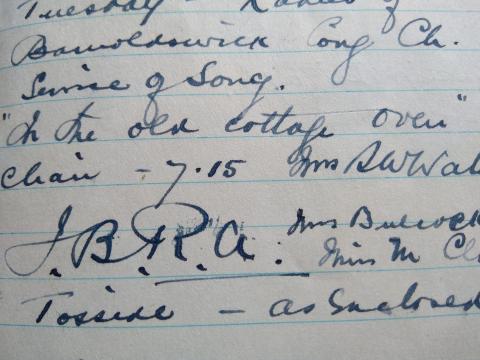 Tuesday - Ladies of
Barnoldswick Cong Ch.
Service of Song.
"In the old cottage oven"
Chair - 7.15 Mrs A W Wal
I.B.R.A. Mrs Bulcock
Miss M Cl
Tosside - as Enclosed